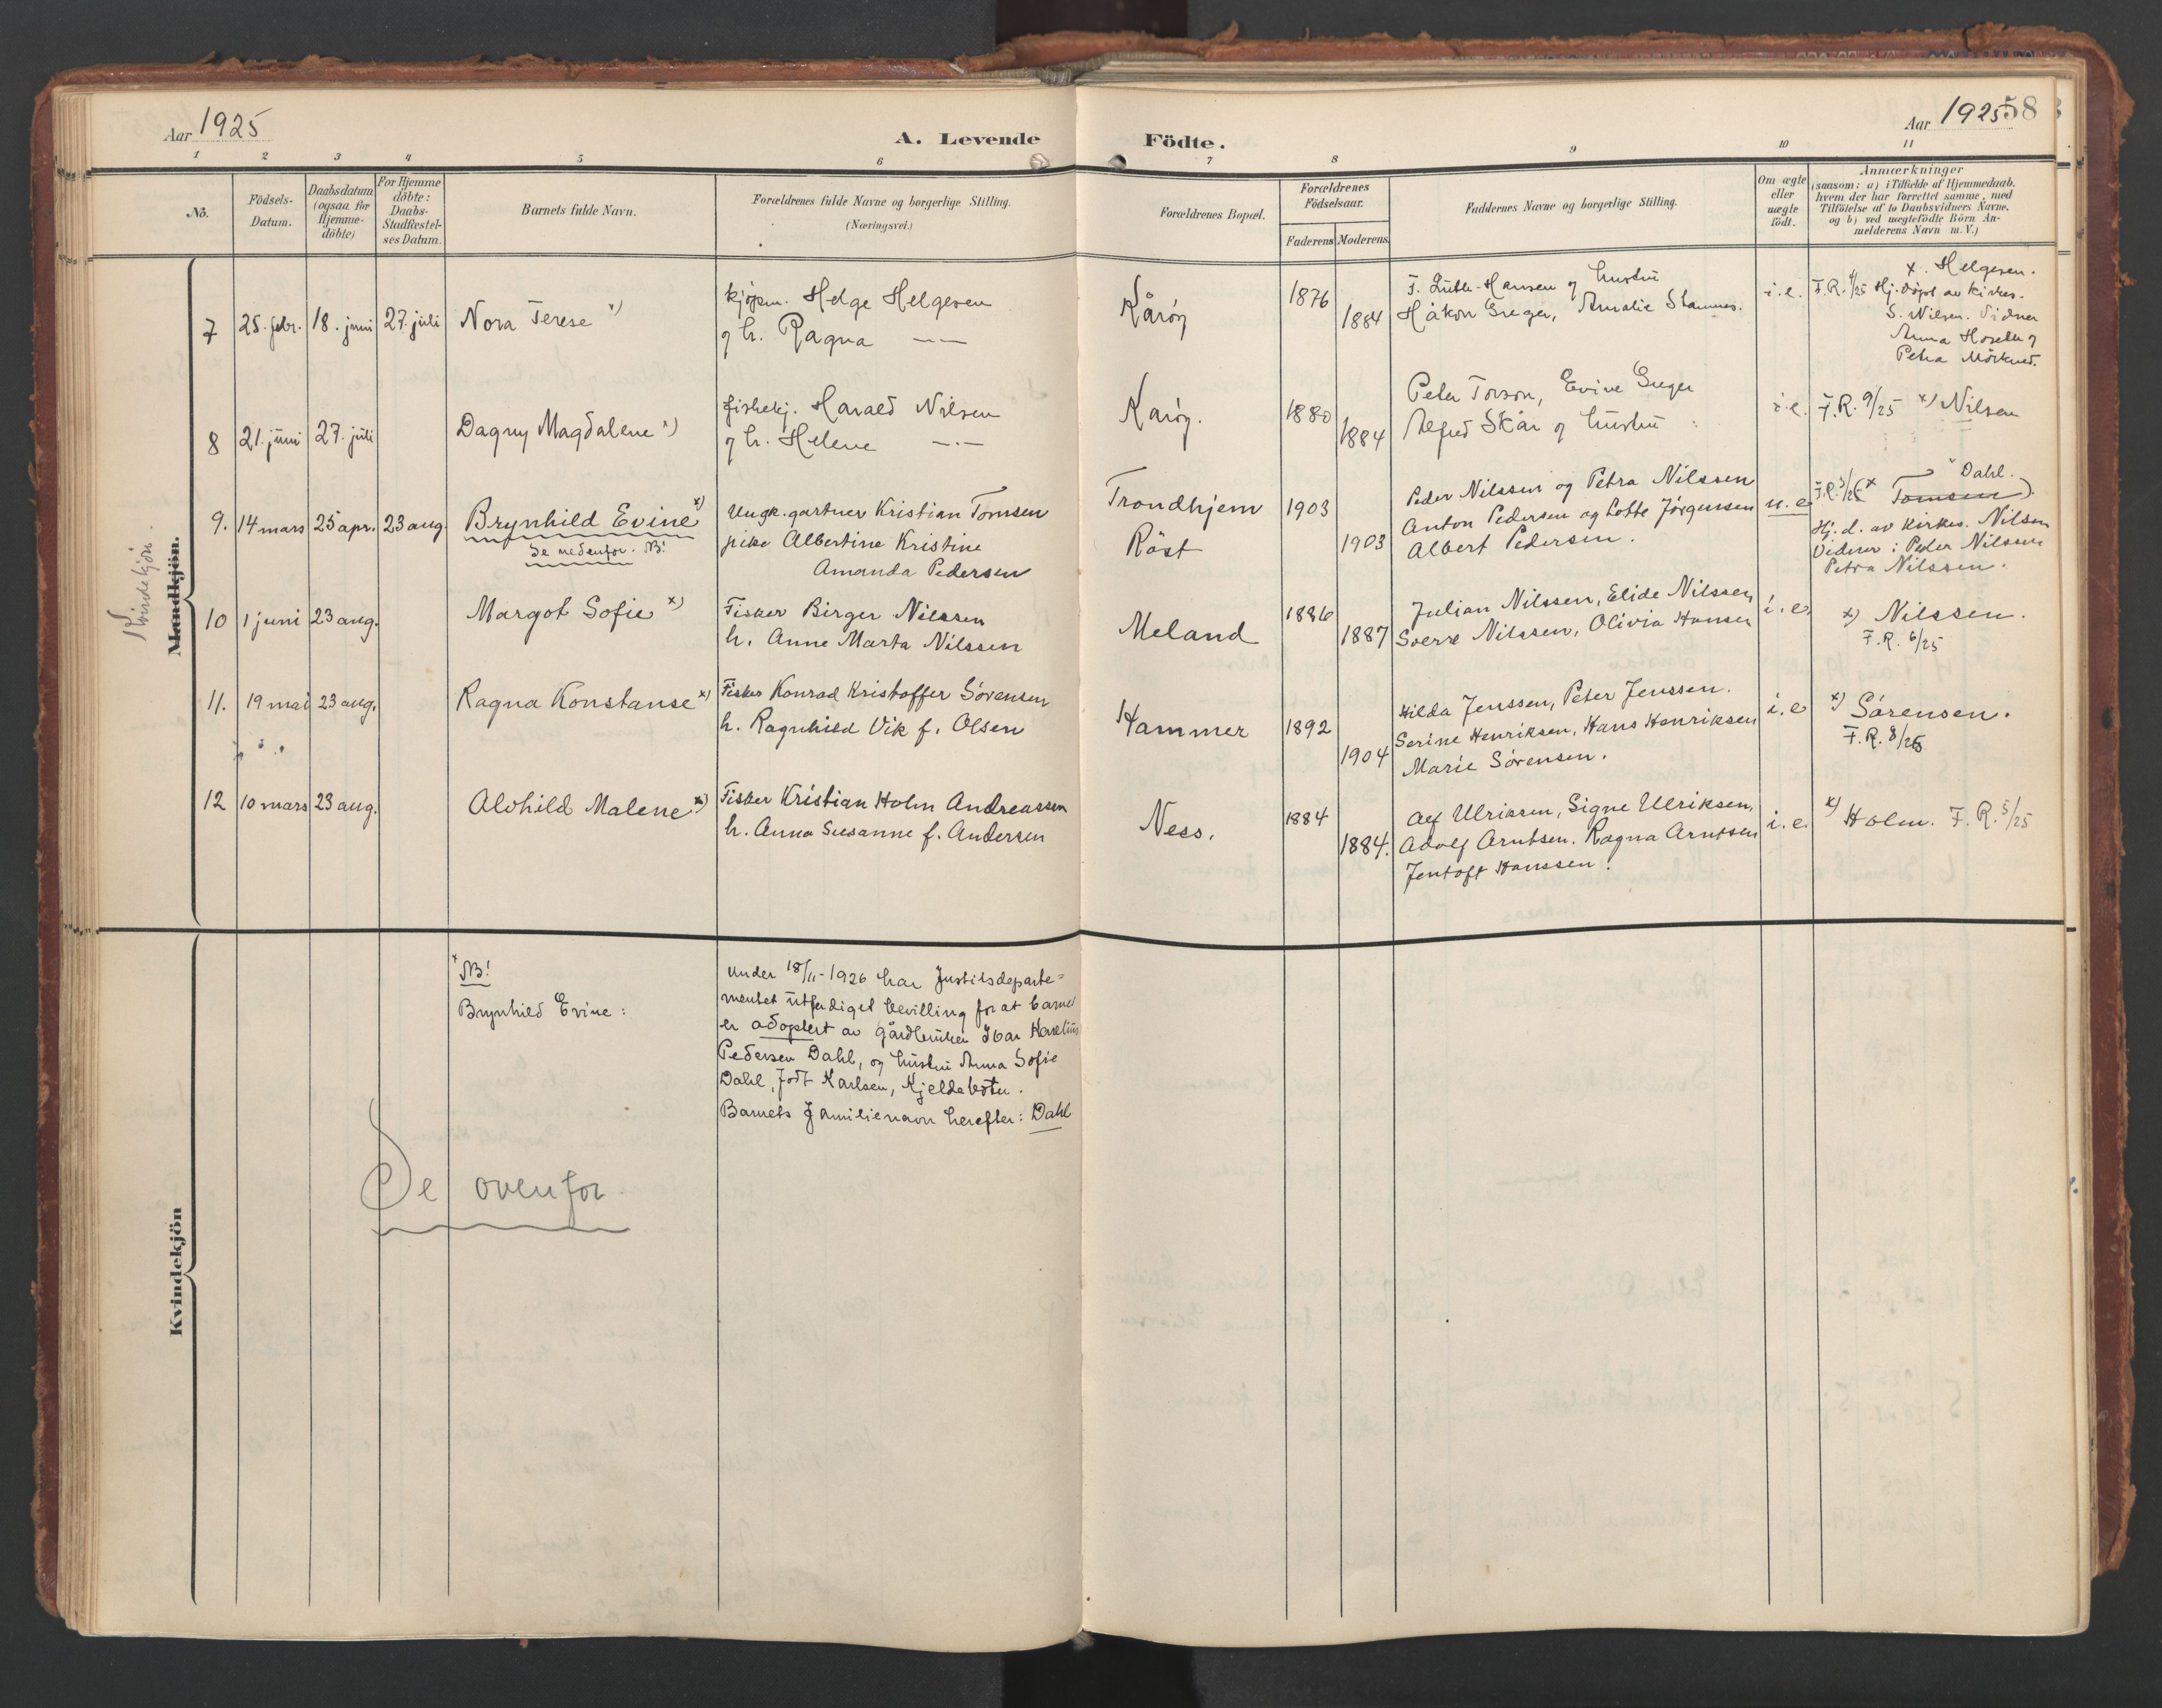 Aar 1925
A. Levende Födte.
Aar 1925
58
1 2 3 4 5 6 7 8 9 10 11
Nò.
Födsels-Datum.
Daabsdatum (ogsaa for Hjemme-döbte)
For Hjemme döbte: Daabs-Stadfæstel-ses Datum.
Barnets fulde Navn.
Forældrenes fulde Navne og borgerlige Stilling.
(Næringsvei.)
Forældrenes Bopæl.
Forældrenes Födselsaar.
Faderens Moderens
Faddernes Navne og borgerlige Stilling.
Om ægte eller uægte födt.
Anmærkninger
(saasom: a) i Tilfælde af Hjemmedaab,
hvem der har forrettet samme, med
Tilföielse af to Daabsvidners Navne,
og b) ved uægtefödte Börn An-
melderens Navn m. V.)
Kvindekjön.
Mandkjön.
7 25. febr. 18. juni 27. juli Nora Terese x)
kjøpm. Helge Helgesen
og h. Ragna —"—
Kårøy 1876 1884
Hansen og hustru
Håkon Greger, Amalie Stamnes.
i.e. F.R. /25 Hj. døpt av kirkes.
x. Helgesen.
S. Nilsen. Vidner
Anna og
Petra
8 21. juni 27. juli Dagny Magdalene x)
fiskekj. Harald Nilsen
og h. Helene —"—
Karøy. 1880 1884
Peter Torson, Evine Greger
Alfred Skår og hustru
i.e. F.R. 9/25 x) Nilsen
9. 14 mars 25 apr. 23 aug. Brynhild Evine x)
Se nedenfor. NB!
Ungk. gartner Kristian Tomsen
pike Albertine Kristine
Amanda Pedersen
Trondhjem
Röst
1903 1903
Peder Nilssen og Petra Nilssen
Anton Pedersen og Lotte Jörgensen
Albert Pedersen.
u.e. F.R. 3/26 (x Tomsen) Dahl.
Hj. d. av kirkes. Nilsen
Vidner: Peder Nilssen
Petra Nilssen.
10 1 juni 23 aug. Margot Sofie x)
Fisker Birger Nilssen
h. Anne Marta Nilssen
Meland 1886 1887
Julian Nilssen, Elide Nilssen
Sverre Nilssen, Olivia Hansen
i.e. x) Nilssen.
F.R. 6/25
11. 19 mai 23 aug. Ragna Konstanse x)
Fisker Konrad Kristoffer Sörensen
h. Ragnhild Vik f. Olsen
Hammer 1892 1904
Hilda Jenssen, Peter Jenssen.
Serine Henriksen, Hans Henriksen
Marie Sörensen.
i.e. x) Sörensen.
F.R. 8/25
12 10 mars 23 aug. Alvhild Malene x)
Fisker Kristian Holm Andreassen
h. Anna Susanne f. Andersen
Ness. 1884 1884.
Alf Ulriksen, Signe Ulriksen,
Adolf Arntsen, Ragna Arntsen
Jentoft Hanssen.
i.e. x) Holm. F.R. 5/25
x NB!
Brynhild Evine:
Under 18/11-1926 har Justitsdeparte=
mentet utferdiget bevilling for at barnet
er adoptert av gårdbruker Ivar
Pedersen Dahl, og hustru Anna Sofie
Dahl, født Karlsen, Kjeldebotn.
Barnets familienavn herefter: Dahl
Se ovenfor.
Kvindekjön